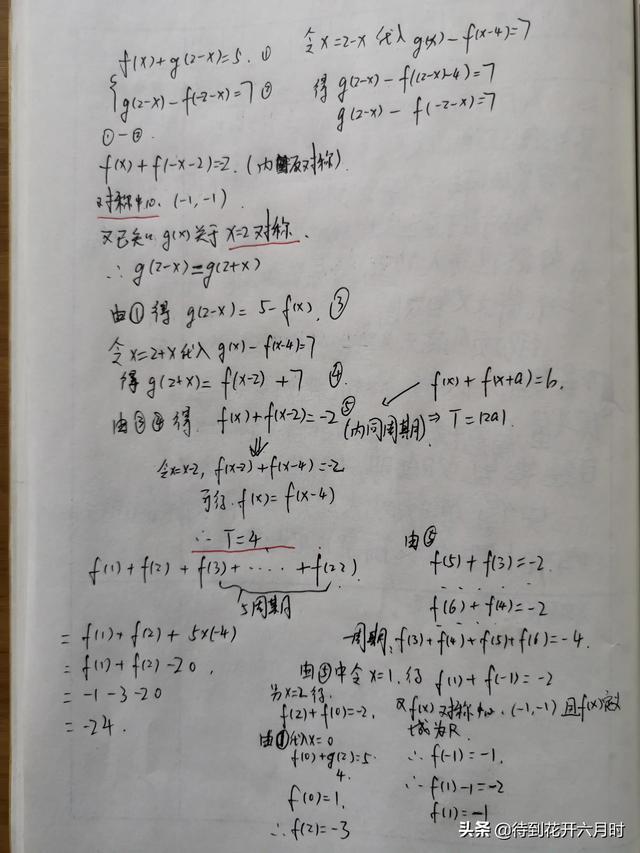 f(x)+g(2-x)=5. ①
g(2-x)-f(-2-x)=7 ②
令x=2-x代入 g(x)-f(x-4)=7
得 g(2-x)-f((2-x)-4)=7
g(2-x)-f(-2-x)=7
①-②.
f(x)+f(-x-2)=-2. (内反对称)
对称中心. (-1,-1)
又已知 g(x)关于 x=2对称.
∴ g(2-x)=g(2+x)
由①得 g(2-x)=5-f(x). ③
令x=2+x代入 g(x)-f(x-4)=7
得 g(2+x)=f(x-2)+7 ④
由③④得. f(x)+f(x-2)=-2 ⑤
f(x)+f(x+a)=b.
(内同周期) ⇒ T=|2a|
令x=x-2, f(x-2)+f(x-4)=-2
可得. f(x)=f(x-4)
∴ T=4
f(1)+f(2)+f(3)+……+f(22)
5周期
=f(1)+f(2)+5×(-4)
=f(1)+f(2)-20
=-1-3-20
=-24.
由⑤
f(5)+f(3)=-2
f(6)+f(4)=-2
一周期:f(3)+f(4)+f(5)+f(6)=-4.
由⑤中令x=1.得 f(1)+f(-1)=-2
x=2得.
f(2)+f(0)=-2,
由①代入x=0
f(0)+g(2)=5
4.
f(0)=1,
∴f(2)=-3
又f(x)对称中心. (-1,-1)且f(x)定义
域为R.
∴f(-1)=-1.
∴f(1)-1=-2
f(1)=-1
头条 @待到花开六月时